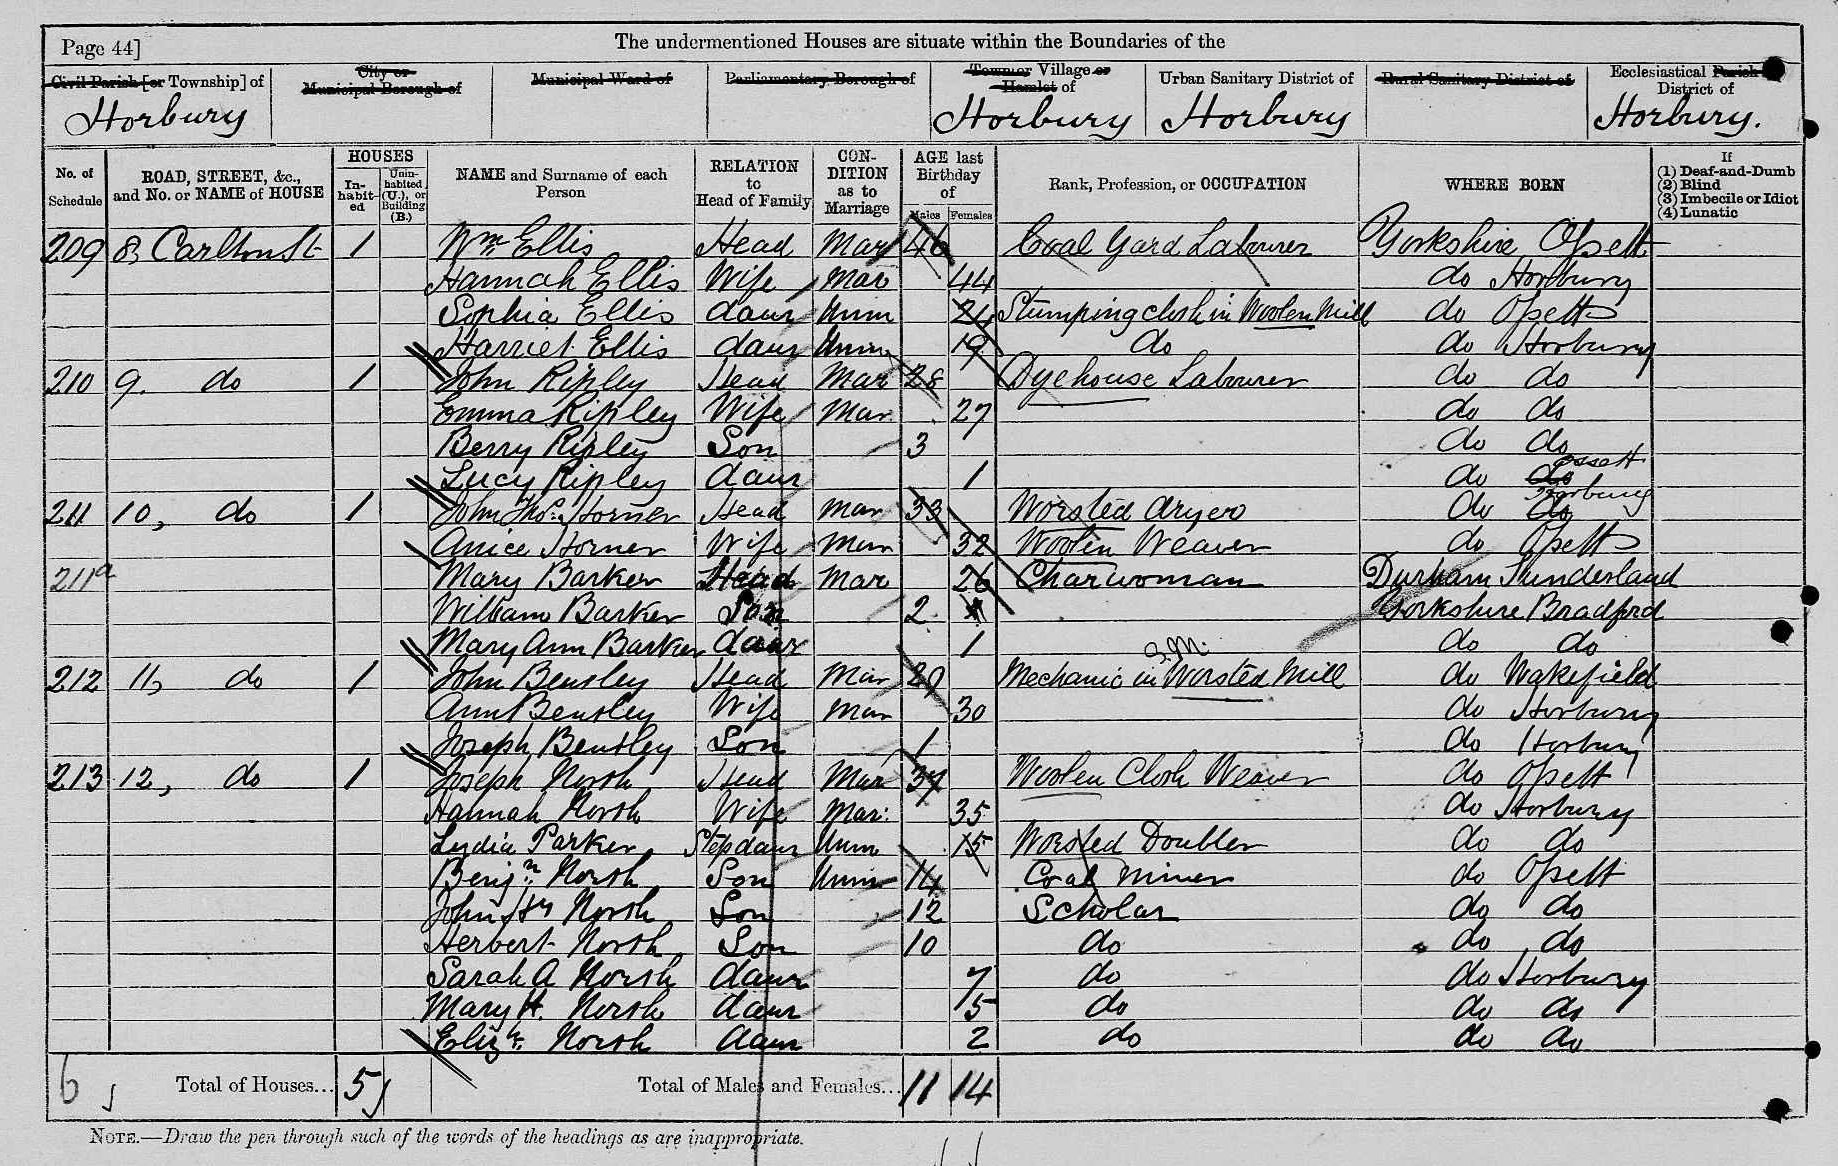 Page 44]
The undermentioned Houses are situate within the Boundaries of the
Civil Parish [or Township] of
City or Municipal Borough of
Municipal Ward of
Parliamentary Borough of
Town or Village or Hamlet of
Urban Sanitary District of
Rural Sanitary District of
Ecclesiastical Parish or District of
Horbury Horbury Horbury Horbury.
No. of Schedule
ROAD, STREET, &c., and No. or NAME of HOUSE
HOUSES
In-habit-ed
Unin-habited (U.), or Building (B.)
NAME and Surname of each Person
RELATION to Head of Family
CON-DITION as to Marriage
AGE last Birthday of
Males Females
Rank, Profession, or OCCUPATION
WHERE BORN
If
(1) Deaf-and-Dumb
(2) Blind
(3) Imbecile or Idiot
(4) Lunatic
209 8, Carlton St 1 Wm Ellis Head Mar 46 Coal Yard Labourer Yorkshire Ossett
Hannah Ellis Wife Mar 44 do Horbury
Sophia Ellis daur Unm 24 Stumping cloth in Woolen Mill do Ossett
Harriet Ellis daur Unm 19 do do Horbury
210 9. do 1 John Ripley Head Mar 28 Dyehouse Labourer do do
Emma Ripley Wife Mar 27 do do
Berry Ripley Son 3 do do
Lucy Ripley daur 1 do do Ossett
211 10, do 1 John Thos. Horner Head Mar 33 Worsted dryer do do Horbury
Anice Horner Wife Mar 32 Woolen Weaver do Ossett
211a Mary Barker Head Mar 26 Charwoman Durham Sunderland
William Barker Son 2 Yorkshire Bradford
Mary Ann Barker daur 1 do do
S.M.
212 11, do 1 John Bensley Head Mar 29 Mechanic in Worsted Mill do Wakefield
Ann Bensley Wife Mar 30 do Horbury
Joseph Bensley Son 1 do Horbury
213 12, do 1 Joseph North Head Mar 37 Woolen Cloth Weaver do Ossett
Hannah North Wife Mar: 35 do Horbury
Lydia Parker Stepdaur Unm 15 Worsted Doubler do do
Benjn. North Son Unm 14 Coal Miner do Ossett
John Hy North Son 12 Scholar do do
Herbert North Son 10 do do do
Sarah A North daur 7 do do Horbury
Mary H. North daur 5 do do do
Elizh. North daur 2 do do do
6 Total of Houses... 5 Total of Males and Females... 11 14
NOTE.—Draw the pen through such of the words of the headings as are inappropriate.